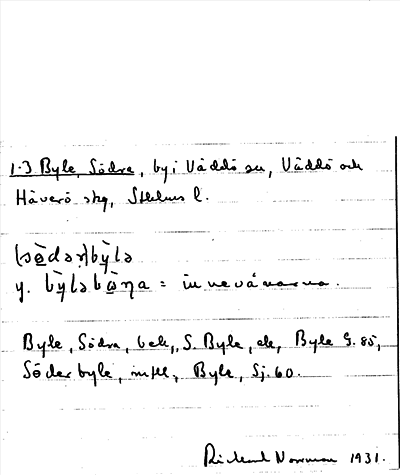 1-3 Byle, Södra, by i Väddö sn, Väddö och
Häverö skg, Sthlms l.
(sø̀dəṇ)by̆̀lə
y. by̆̀ləbòṇa = innevånarna.
Byle, Södra, bek, S. Byle, ek, Byle G. 85,
Söderbyle, mtll, Byle, Sj. 60.
Rickard Norrman 1931.